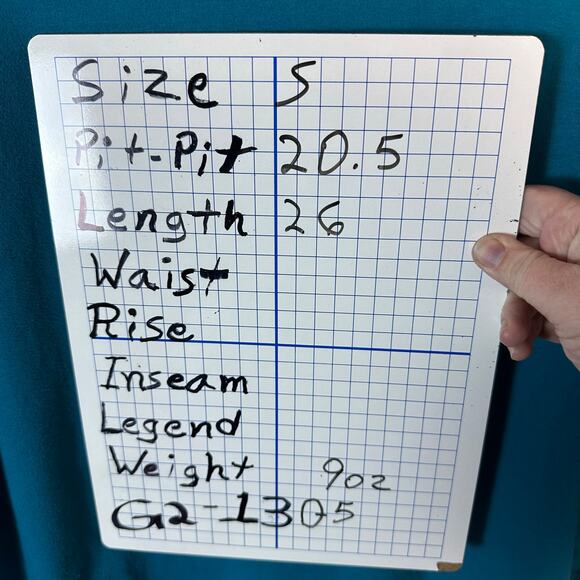 Size S
Pit-Pit 20.5
Length 26
Waist
Rise
Inseam
Legend
Weight 9oz
G2-1305